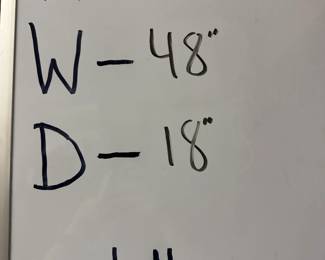 W - 48"
D - 18"